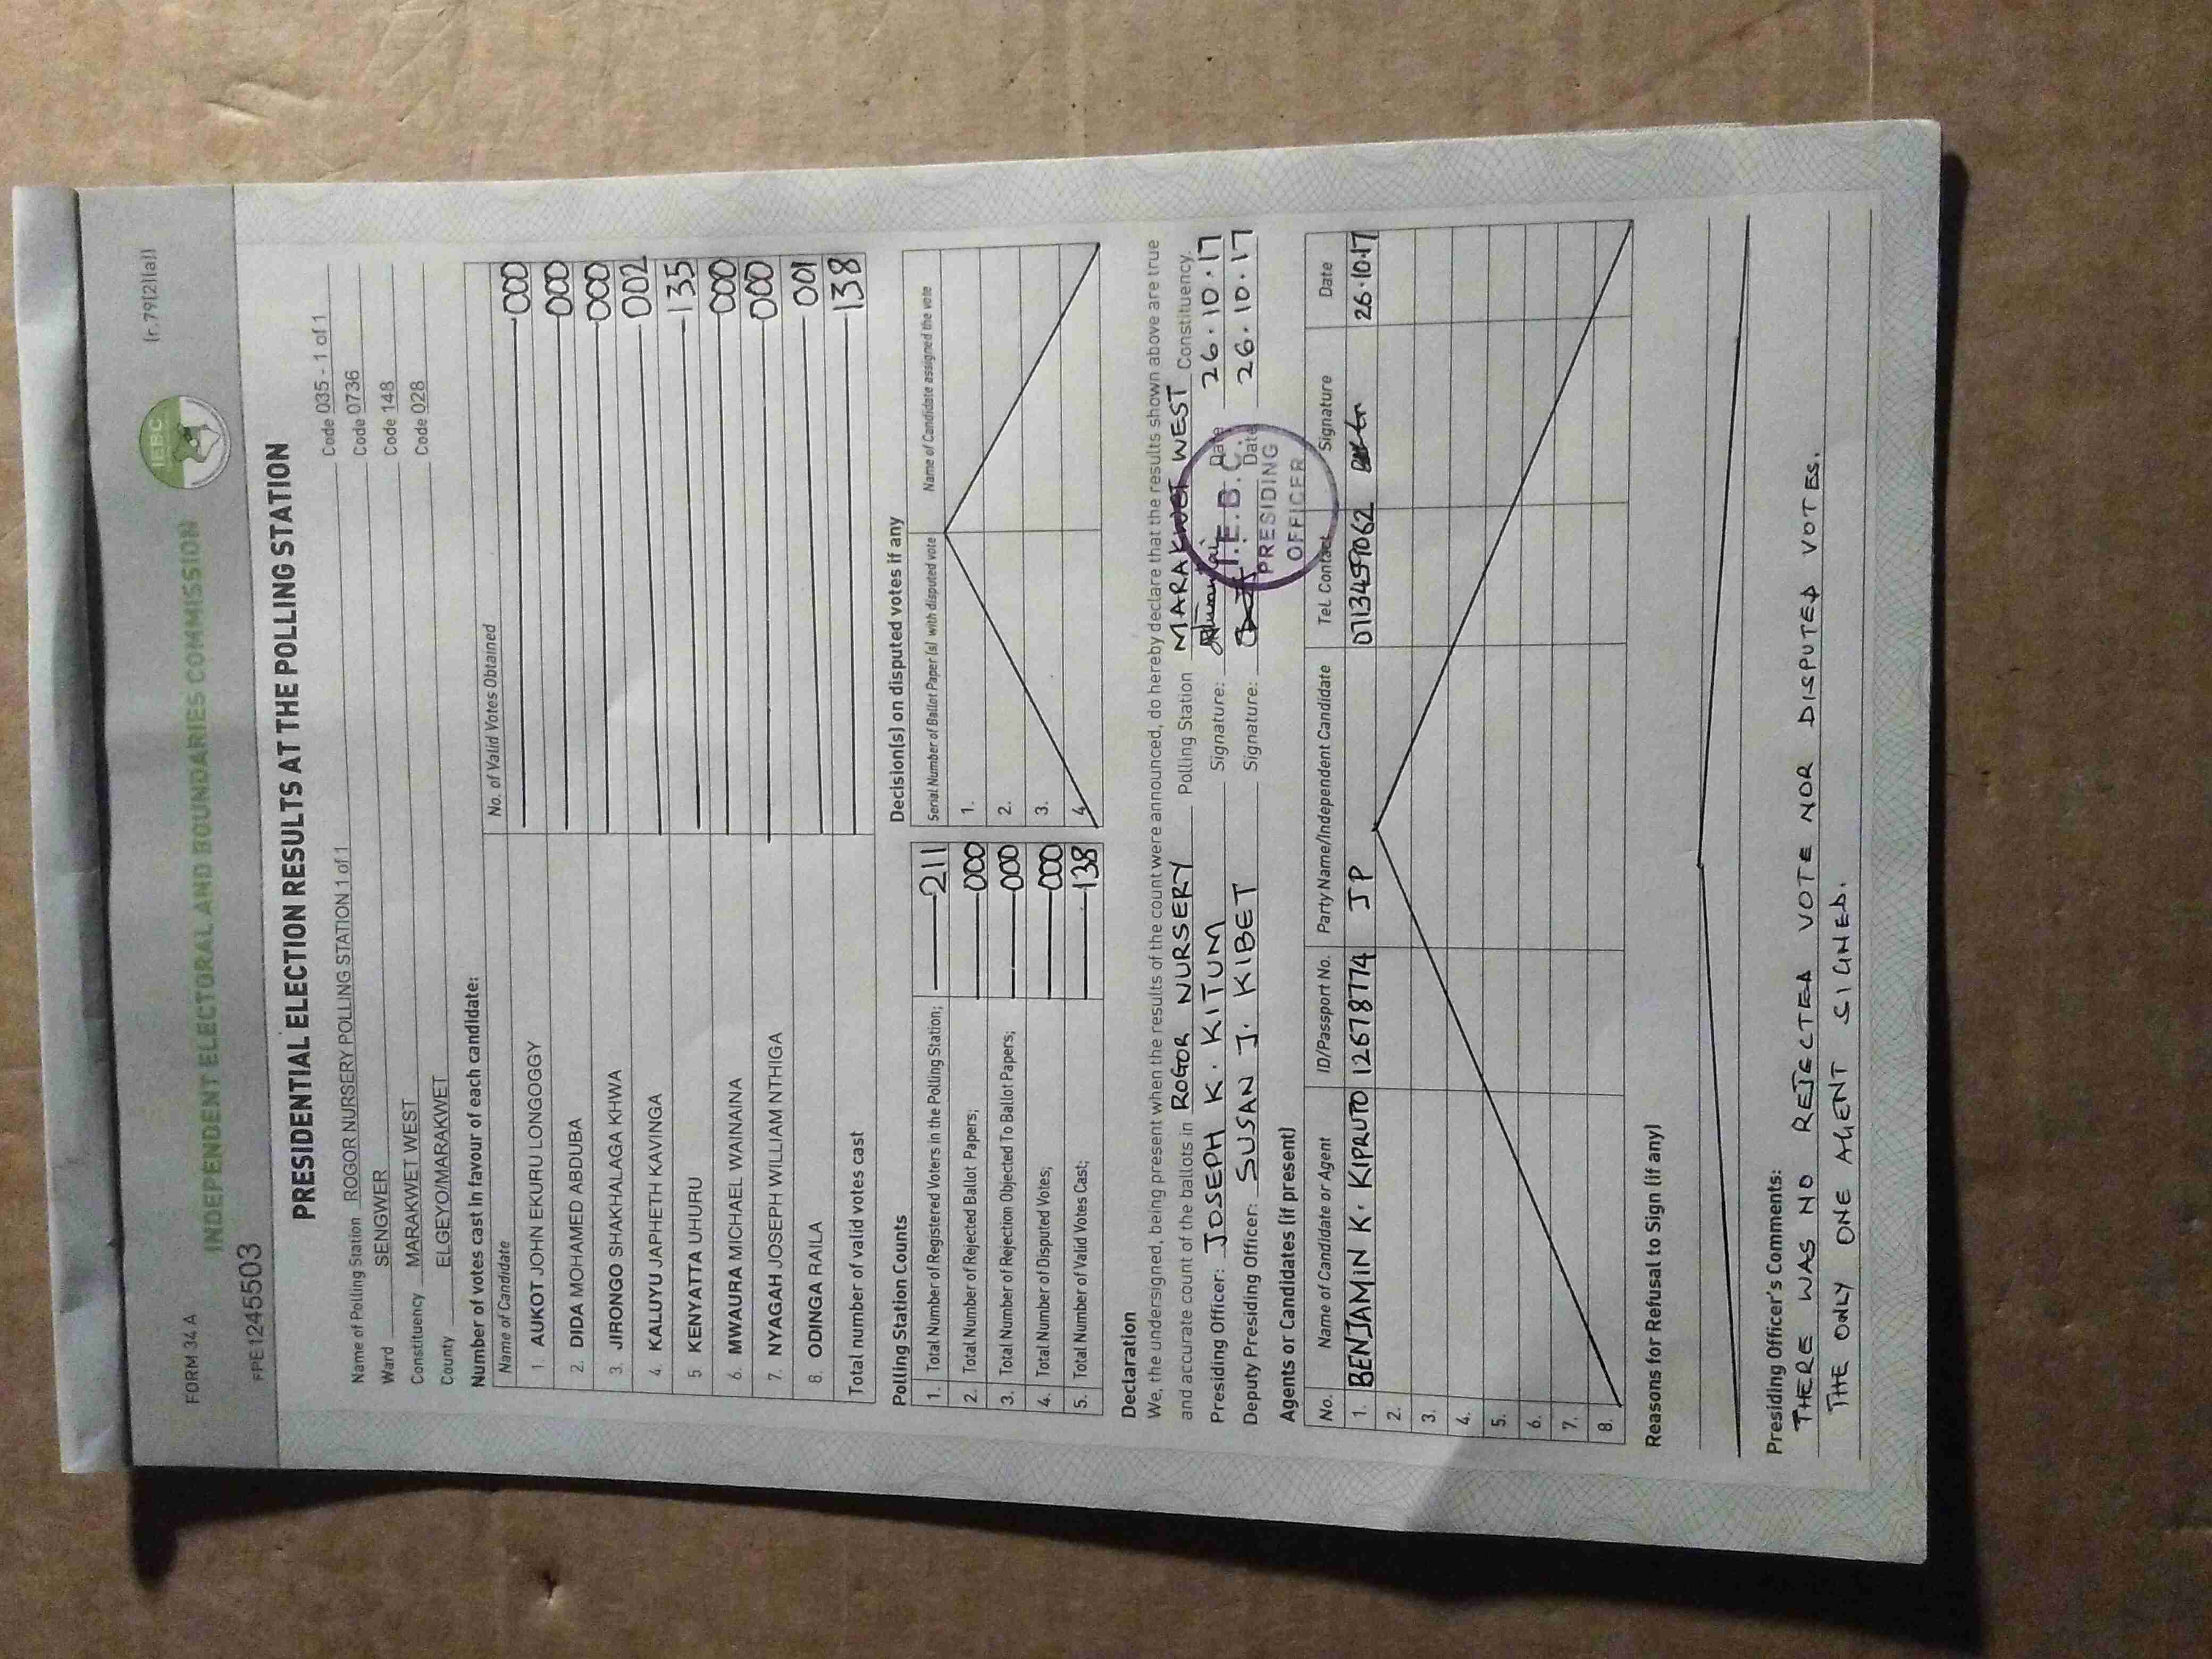 FORM 34 A
(r.79(2)(a))
IEBC
INDEPENDENT ELECTORAL AND BOUNDARIES COMMISSION
FPE1245503
PRESIDENTIAL ELECTION RESULTS AT THE POLLING STATION
Name of Polling Station ROGOR NURSERY POLLING STATION 1 of 1 Code 035 - 1 of 1
Ward SENGWER Code 0736
Constituency MARAKWET WEST Code 148
County ELGEYO/MARAKWET Code 028
Number of votes cast in favour of each candidate:
Name of Candidate No. of Valid Votes Obtained
1. AUKOT JOHN EKURU LONGOGGY 000
2. DIDA MOHAMED ABDUBA 000
3. JIRONGO SHAKHALAGA KHWA 000
4. KALUYU JAPHETH KAVINGA 002
5 KENYATTA UHURU 135
6. MWAURA MICHAEL WAINAINA 000
7. NYAGAH JOSEPH WILLIAM NTHIGA 000
8. ODINGA RAILA 001
Total number of valid votes cast 138
Polling Station Counts
1. Total Number of Registered Voters in the Polling Station; 211
2. Total Number of Rejected Ballot Papers; 000
3. Total Number of Rejection Objected To Ballot Papers; 000
4. Total Number of Disputed Votes; 000
5. Total Number of Valid Votes Cast; 138
Decision(s) on disputed votes if any
Serial Number of Ballot Paper (s) with disputed vote Name of Candidate assigned the vote
1.
2.
3.
4.
Declaration
We, the undersigned, being present when the results of the count were announced, do hereby declare that the results shown above are true
and accurate count of the ballots in ROGOR NURSERY Polling Station MARAKWET WEST Constituency.
Presiding Officer: JOSEPH K. KITUM Signature: Date 26.10.17
Deputy Presiding Officer: SUSAN J. KIBET Signature: Date 26.10.17
I.E.B.C.
PRESIDING
OFFICER
Agents or Candidates (if present)
No. Name of Candidate or Agent ID/Passport No. Party Name/Independent Candidate Tel. Contact Signature Date
1. BENJAMIN K. KIPRUTO 12678774 JP 26.10.17
2.
3.
4.
5.
6.
7.
8.
Reasons for Refusal to Sign (if any)
Presiding Officer's Comments:
THERE WAS NO REJECTED VOTE NOR DISPUTED VOTES.
THE ONLY ONE AGENT SIGNED.